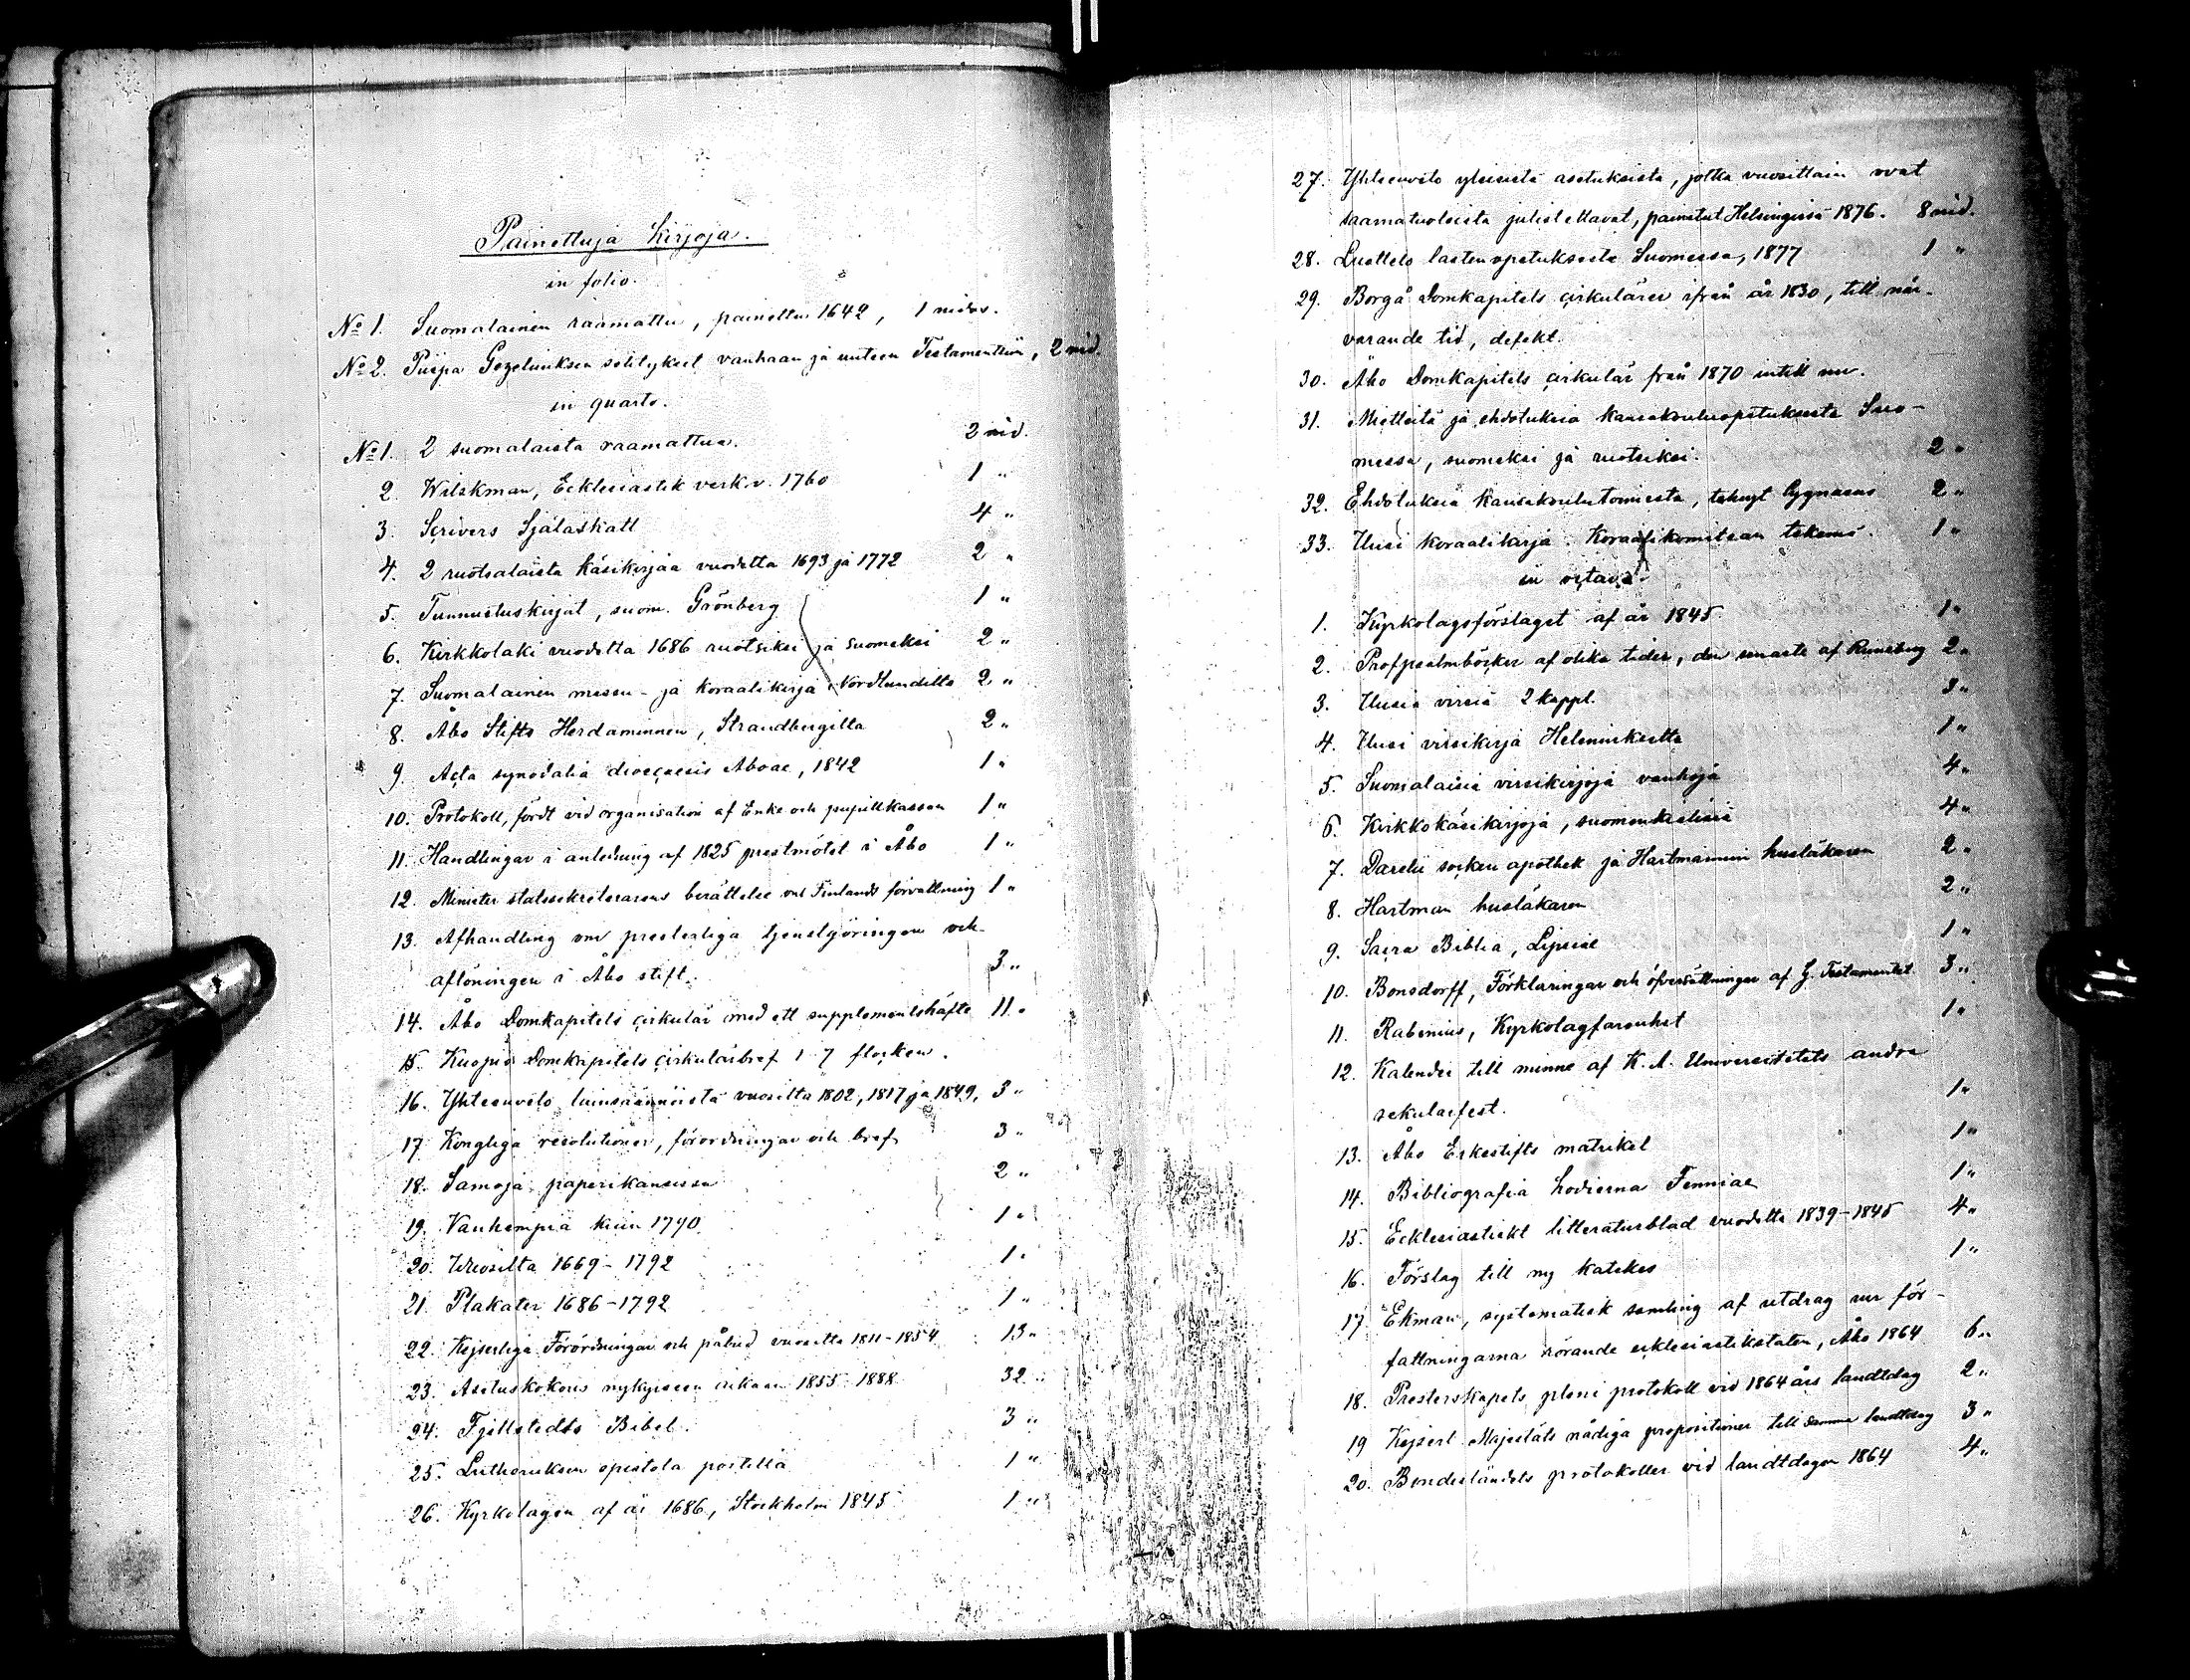 Painettuja kirjoja.
in folio.
No 1. Suomalainen raamattu, painettu 1642, 1 nidos.
No 2. Piispa Gezeliuksen selitykset vanhaan ja uuteen Testamenttiin, 2 nid.
in quarto.
No 1. 2 suomalaista raamattua. 2 nid.
2. Wilskman, Ecklesiastik verk v. 1760 1 "
3. Scrivers Själaskatt 4 "
4. 2 ruotsalaista käsikirjaa vuodetta 1693 ja 1772 2 "
5. Tunnustuskirjat, suom. Grönberg 1 "
6. Kirkkolaki vuodetta 1686 ruotsiksi ja suomeksi 2 "
7. Suomalainen messu- ja koraalikirja Nordlundilta 2 "
8. Åbo Stifts Herdaminnen, Strandbergilta 2 "
9. Acta synodalia dioecaesis Aboae, 1842 1 "
10. Protokoll, fördt vid organisation af Enke och pupillkassan 1 "
11. Handlingar i anledning af 1825 prestmötet i Åbo 1 "
12. Minister statssekreterarens berättelse om Finlands förvaltning 1 "
13. Afhandling om presterliga tjenstgöringen och
aflöningen i Åbo stift. 3 "
14. Åbo Domkapitels cirkulär med ett supplementshäfte 11 "
15. Kuopio Domkapitels cirkulärbref 1-7 flocken.
16. Yhteenveto lainsäännöistä vuosilta 1802, 1817 ja 1849, 3 "
17. Kongliga resolutioner, förordningar och bref 3 "
18. Samoja paperikansissa 2 "
19. Vanhempia kuin 1790 1 "
20. Wuosilta 1669-1792 1 "
21. Plakater 1686-1792 1 "
22. Kejserliga Förordningar och påbud vuosilta 1811-1854 13 "
23. Asetuskokous nykyiseen aikaan 1855-1888 32 "
24. Fjellstedts Bibel. 3 "
25. Lutheruksen epistola postilla 1 "
26. Kyrkolagen af år 1686, Stockholm 1845 1 "
27. Yhteenveto yleisistä asetuksista, jotka vuosittain ovat
saarnatuoleista julistettavat, painetut Helsingissä 1876. 8 nid.
28. Luettelo lastenopetuksesta Suomessa, 1877 1 "
29. Borgå Domkapitels cirkulärer ifrån år 1830, till när-
varande tid, defekt.
30. Åbo Domkapitels cirkulär från 1870 intill nu.
31. Mietteitä ja ehdotuksia kansakouluopetuksesta Suo-
messa, suomeksi ja ruotsiksi. 2 "
32. Ehdotuksia kansakoulutoimesta, tehnyt Cygnaeus 2 "
33. Uusi koraalikirja. Koraalikomitean tekemä. 1 "
in octavo.
1. Kyrkolagsförslaget af år 1845 1 "
2. Profpsalmböcker af olika tider, den senaste af Runeberg 2 "
3. Uusia virsiä 2 kappl. 3 "
4. Uusi virsikirja Heleniukselta 1 "
5. Suomalaisia virsikirjoja vanhoja 4 "
6. Kirkkokäsikirjoja, suomenkielisiä 4 "
7. Darelii socken apothek ja Hartmannin husläkaren 2 "
8. Hartman husläkaren 2 "
9. Sacra Biblia, Lipsiae 1 "
10. Bonsdorff, Förklaringar och öfversättningar af G. Testamentet 3 "
11. Rabenius, Kyrkolagfarenhet 1 "
12. Kalender till minne af K. A. Universitetets andra
sekularfest. 1 "
13. Åbo Erkestifts matrikel 1 "
14. Bibliografia hodierna Fenniae 1 "
15. Ecklesiastiskt litteraturblad vuodetta 1839-1845 4 "
16. Förslag till ny katekes 1 "
17. Ekman, systematisk samling af utdrag ur för-
fattningarna rörande ecklesiastikstaten, Åbo 1864 6 "
18. Presterskapets pleni protokoll vid 1864 års landtdag 2 "
19 Kejserl. Majestäts nådiga propositioner till samma landtdag 3 "
20. Bondeståndets protokoller vid landtdagen 1864 4 "